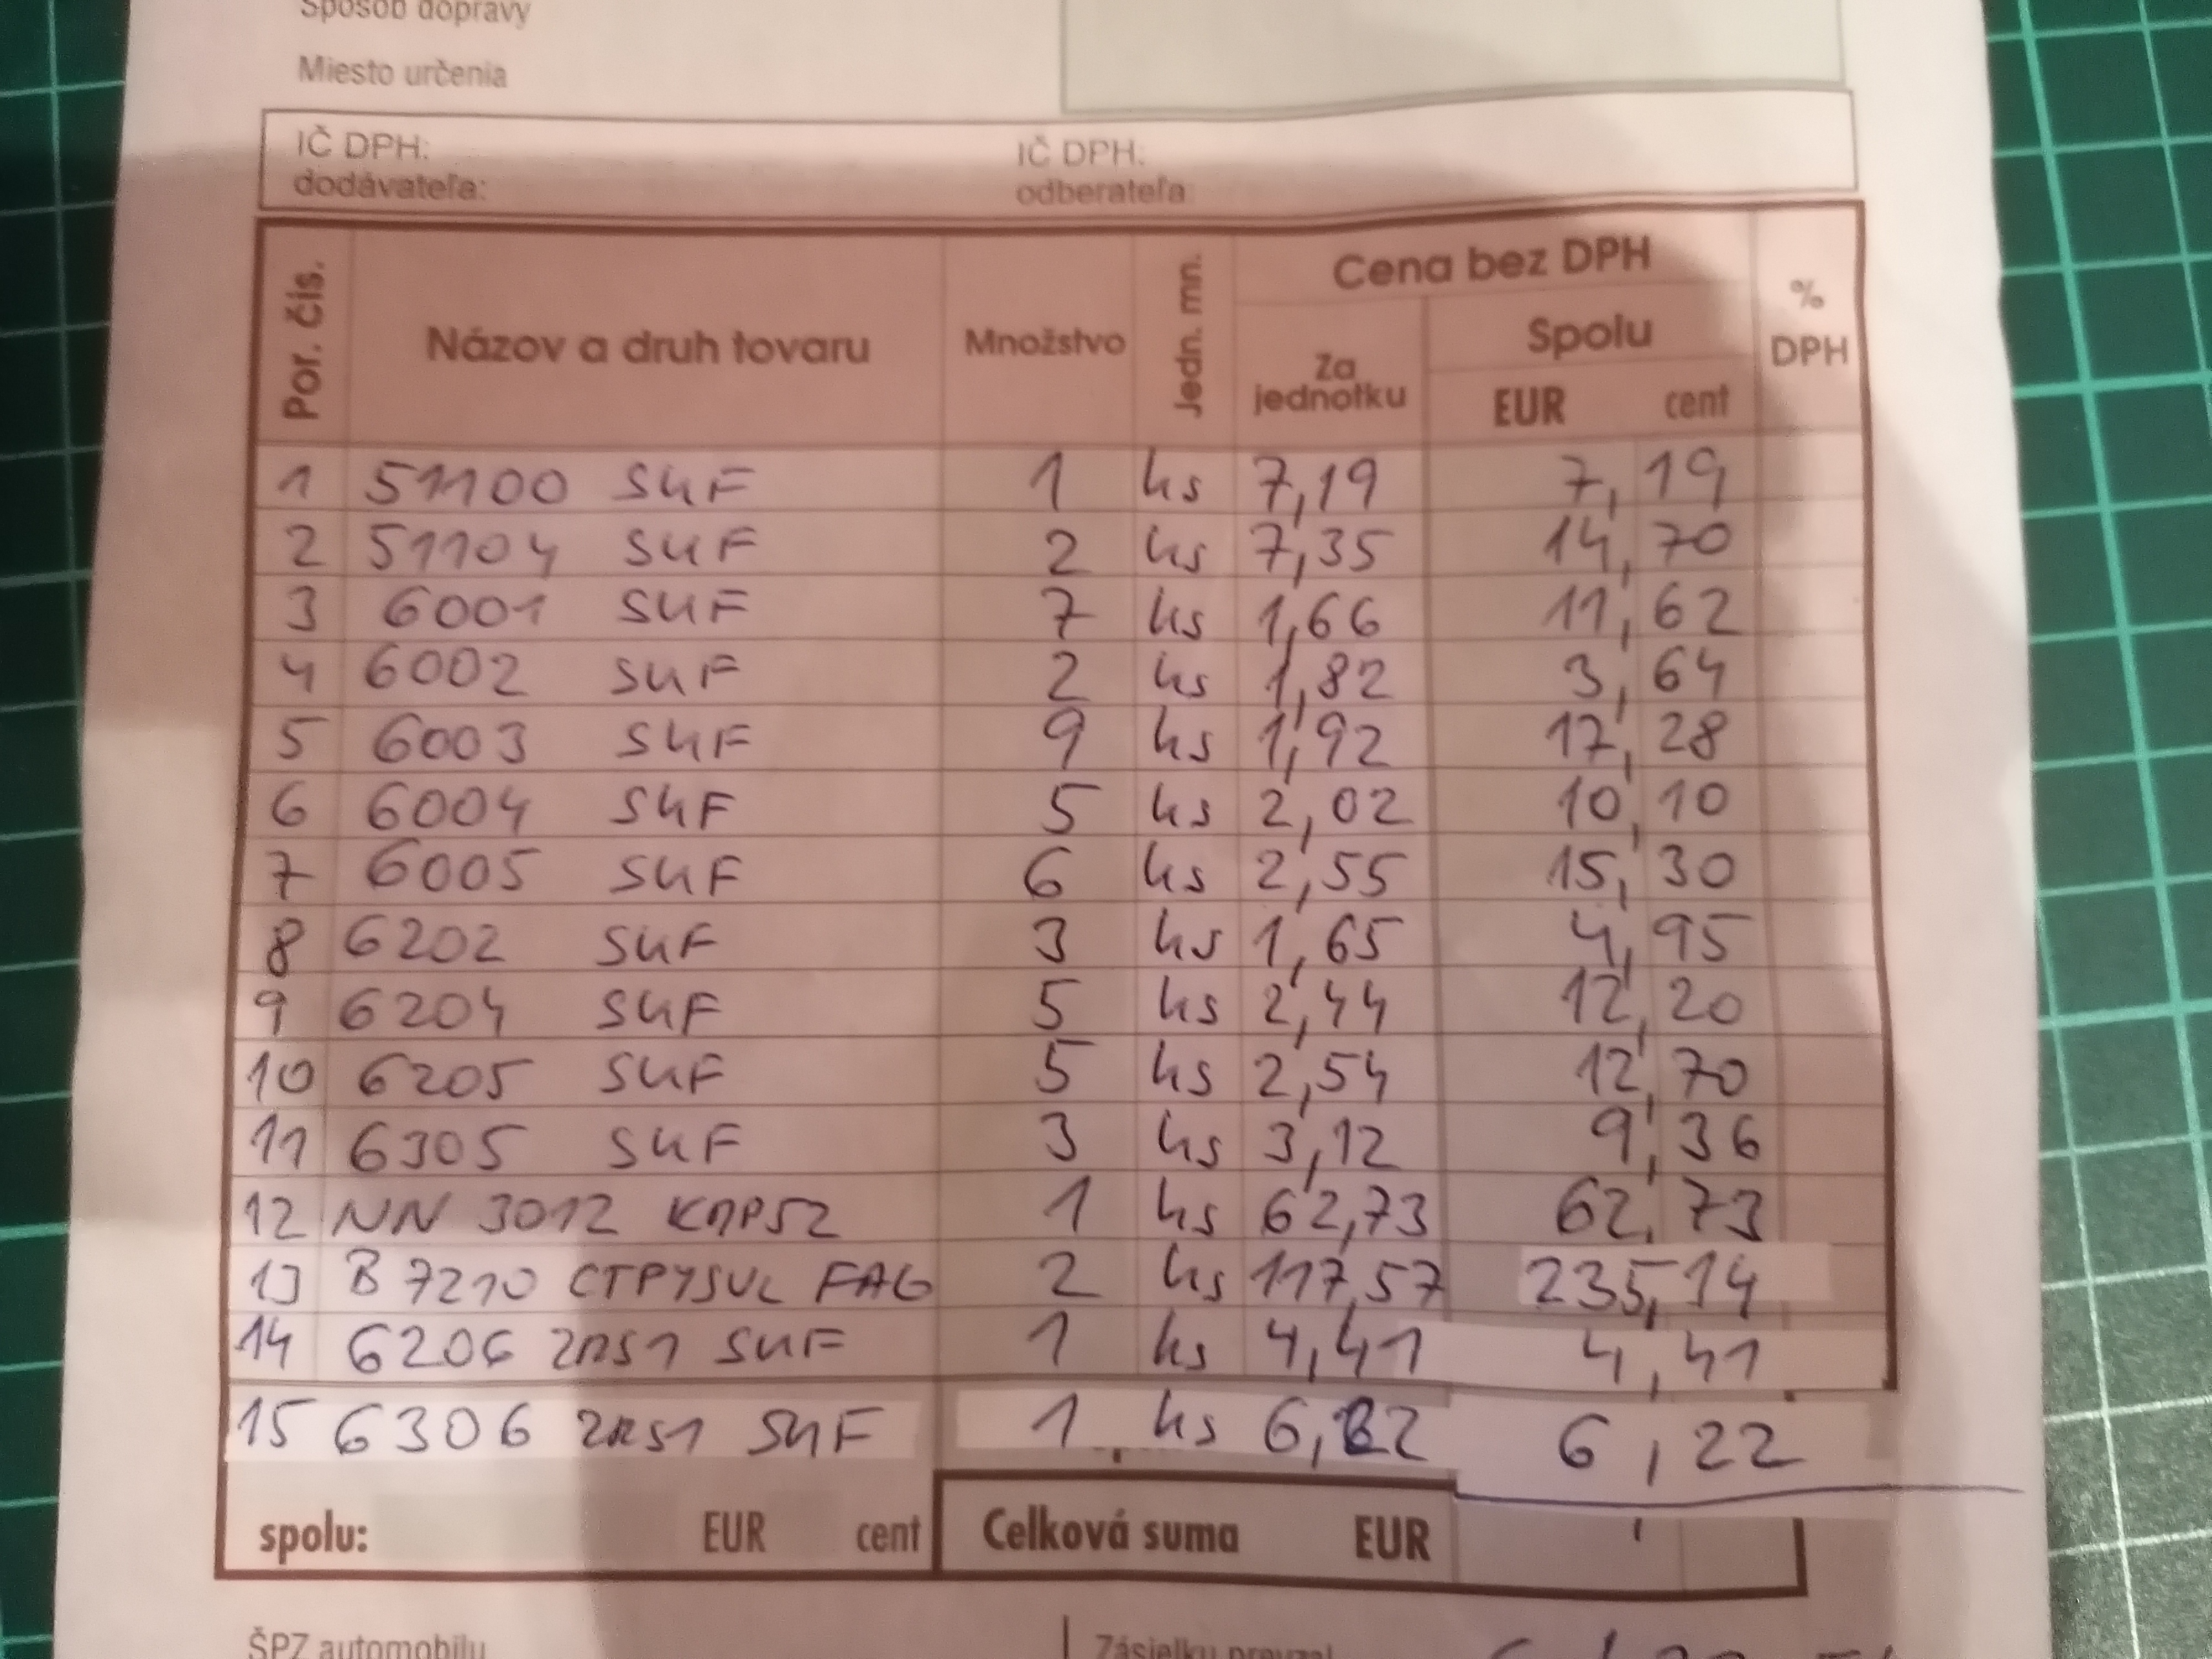 Spôsob dopravy
Miesto určenia
IČ DPH: IČ DPH:
dodávateľa: odberateľa:
Por. čís. Názov a druh tovaru Množstvo Jedn. mn. Cena bez DPH % DPH
Za jednotku Spolu
EUR cent
1 51100 SKF 1 ks 7,19 7,19
2 51104 SKF 2 ks 7,35 14,70
3 6001 SKF 7 ks 1,66 11,62
4 6002 SKF 2 ks 1,82 3,64
5 6003 SKF 9 ks 1,92 17,28
6 6004 SKF 5 ks 2,02 10,10
7 6005 SKF 6 ks 2,55 15,30
8 6202 SKF 3 ks 1,65 4,95
9 6204 SKF 5 ks 2,44 12,20
10 6205 SKF 5 ks 2,54 12,70
11 6305 SKF 3 ks 3,12 9,36
12 NN 3012 1 ks 62,73 62,73
13 B 7210 FAG 2 ks 117,57 235,14
14 6206 2RS1 SKF 1 ks 4,41 4,41
15 6306 2RS1 SKF 1 ks 6,22 6,22
spolu: EUR cent Celková suma EUR
ŠPZ automobilu Zásielku prevzal